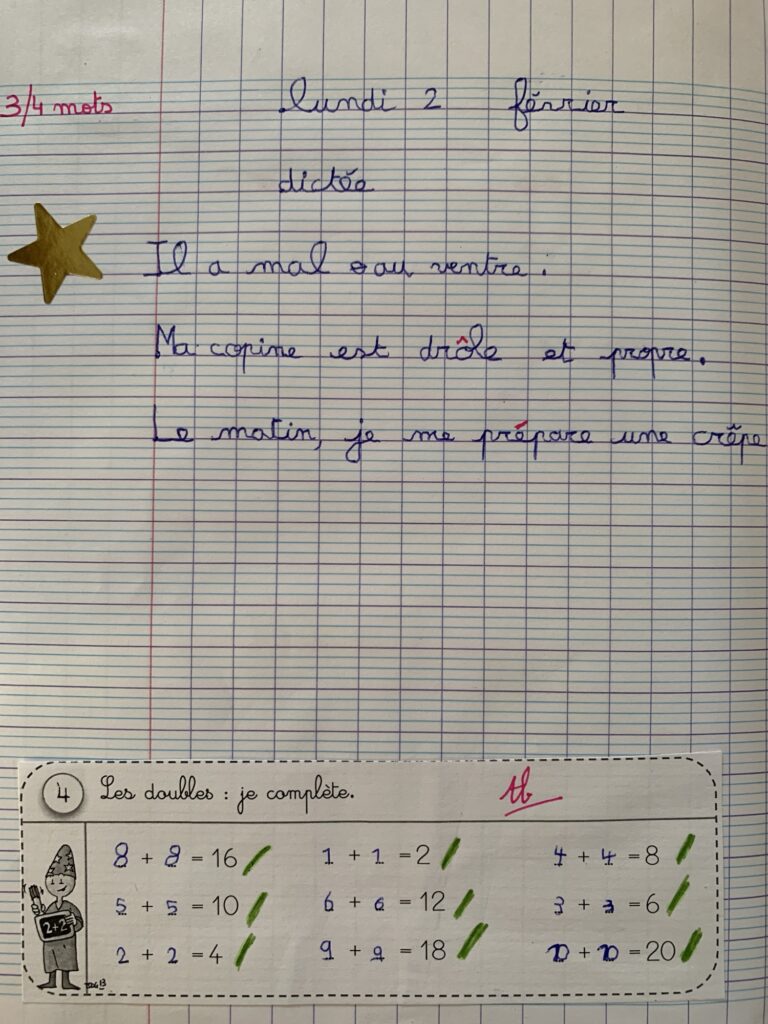 3/4 mots lundi 2 février
dictée
Il a mal au ventre.
Ma copine est drôle et propre.
Le matin, je me prépare une crêpe
4 Les doubles : je complète. tb
8 + 8 = 16 1 + 1 = 2 4 + 4 = 8
5 + 5 = 10 6 + 6 = 12 3 + 3 = 6
2+2
2 + 2 = 4 9 + 9 = 18 10 + 10 = 20